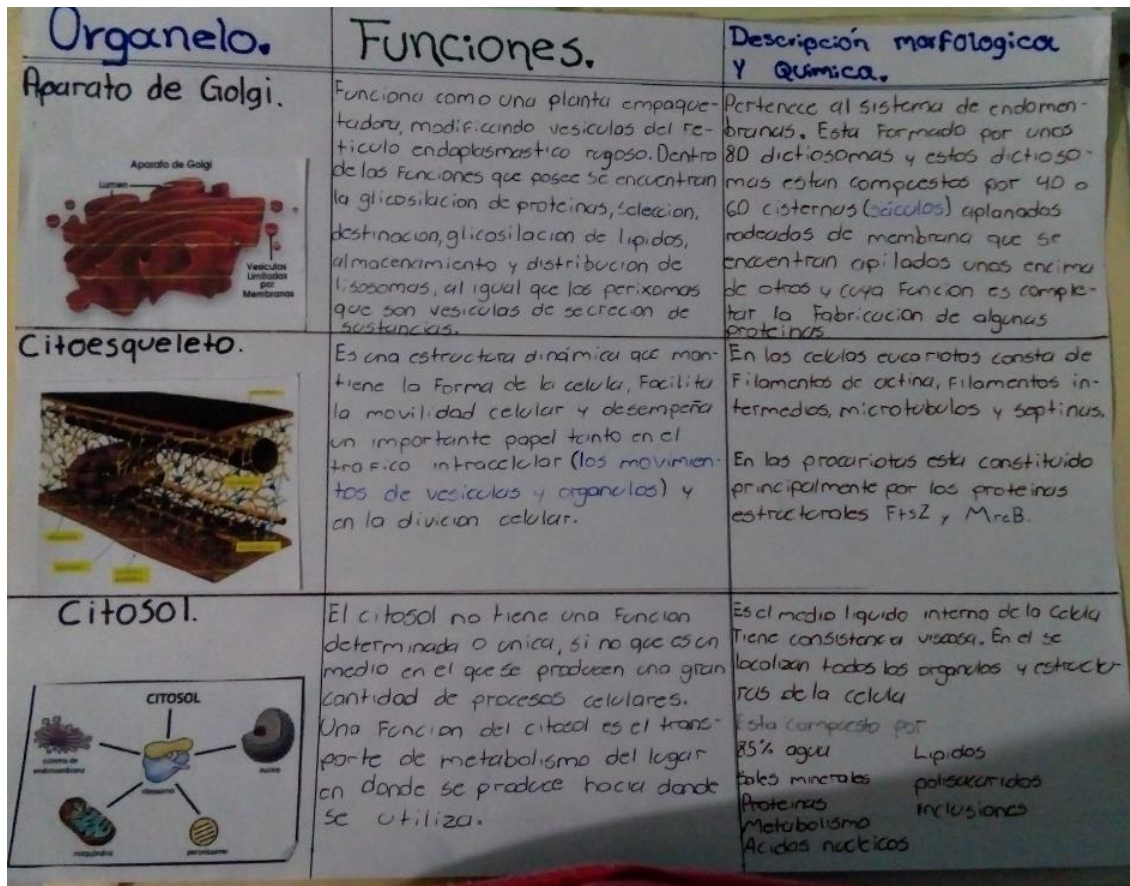 Organelo.
Funciones.
Descripción morfologica
Y Quimica.
Aparato de Golgi.
Aparato de Golgi
Lumen
Vesiculas
Limitadas
por
Membranas
Funciona como una planta empaque-
tadora, modificando vesiculas del re-
ticulo endoplasmastico rugoso. Dentro
de las funciones que posee se encuentran
la glicosilacion de proteinas, seleccion,
destinacion, glicosilacion de lipidos,
almacenamiento y distribucion de
lisosomas, al igual que los perixomas
que son vesiculas de secrecion de
sustancias.
Pertenece al sistema de endomem-
branas. Esta formado por unos
80 dictiosomas y estos dictioso-
mas estan compuestos por 40 o
60 cisternas (saculos) aplanados
rodeados de membrana que se
encuentran apilados unos encima
de otros y cuya funcion es comple-
tar la fabricacion de algunas
proteinas
Citoesqueleto.
Es una estructura dinámica que man-
tiene la forma de la celula, facilita
la movilidad celular y desempeña
un importante papel tanto en el
trafico intracelular (los movimien-
tos de vesiculas y organulos) y
en la divicion celular.
En las celulas eucariotas consta de
Filamentos de actina, filamentos in-
termedios, microtubulos y septinas.
En las procariotas esta constituido
principalmente por las proteinas
estructurales FtsZ y MreB.
Citosol.
CITOSOL
sistema de
endomembrana
ribosoma
nucleo
mitocondria
peroxisoma
El citosol no tiene una funcion
determinada o unica, si no que es un
medio en el que se producen una gran
cantidad de procesos celulares.
Una funcion del citosol es el trans-
porte de metabolismo del lugar
en donde se produce hacia donde
se utiliza.
Es el medio liquido interno de la celula
Tiene consistencia viscosa. En el se
localizan todos los organulos y estructu-
ras de la celula
Esta compuesto por
85% agua
Lipidos
Sales minerales
polisacaridos
Proteinas
inclusiones
Metabolismo
Acidos nucleicos